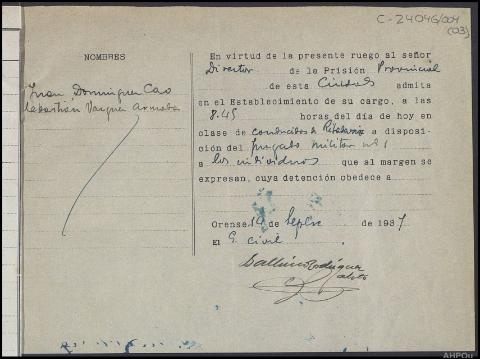 C-24046/004
(03)
NOMBRES
Juan Dominguez Cao
Sebastián Vazquez
En virtud de la presente ruego al señor
Director de la Prisión Provincial
de esta Ciudad admita
en el Establecimiento de su cargo, a las
8.45 horas del día de hoy en
clase de conducidos de Ribadavia a disposi-
ción del Juzgado militar nº 1
a los individuos que al margen se
expresan, cuya detención obedece a
Orense, 14 de Sepbre de 1937
El G. Civil
Rodriguez
AHPOu